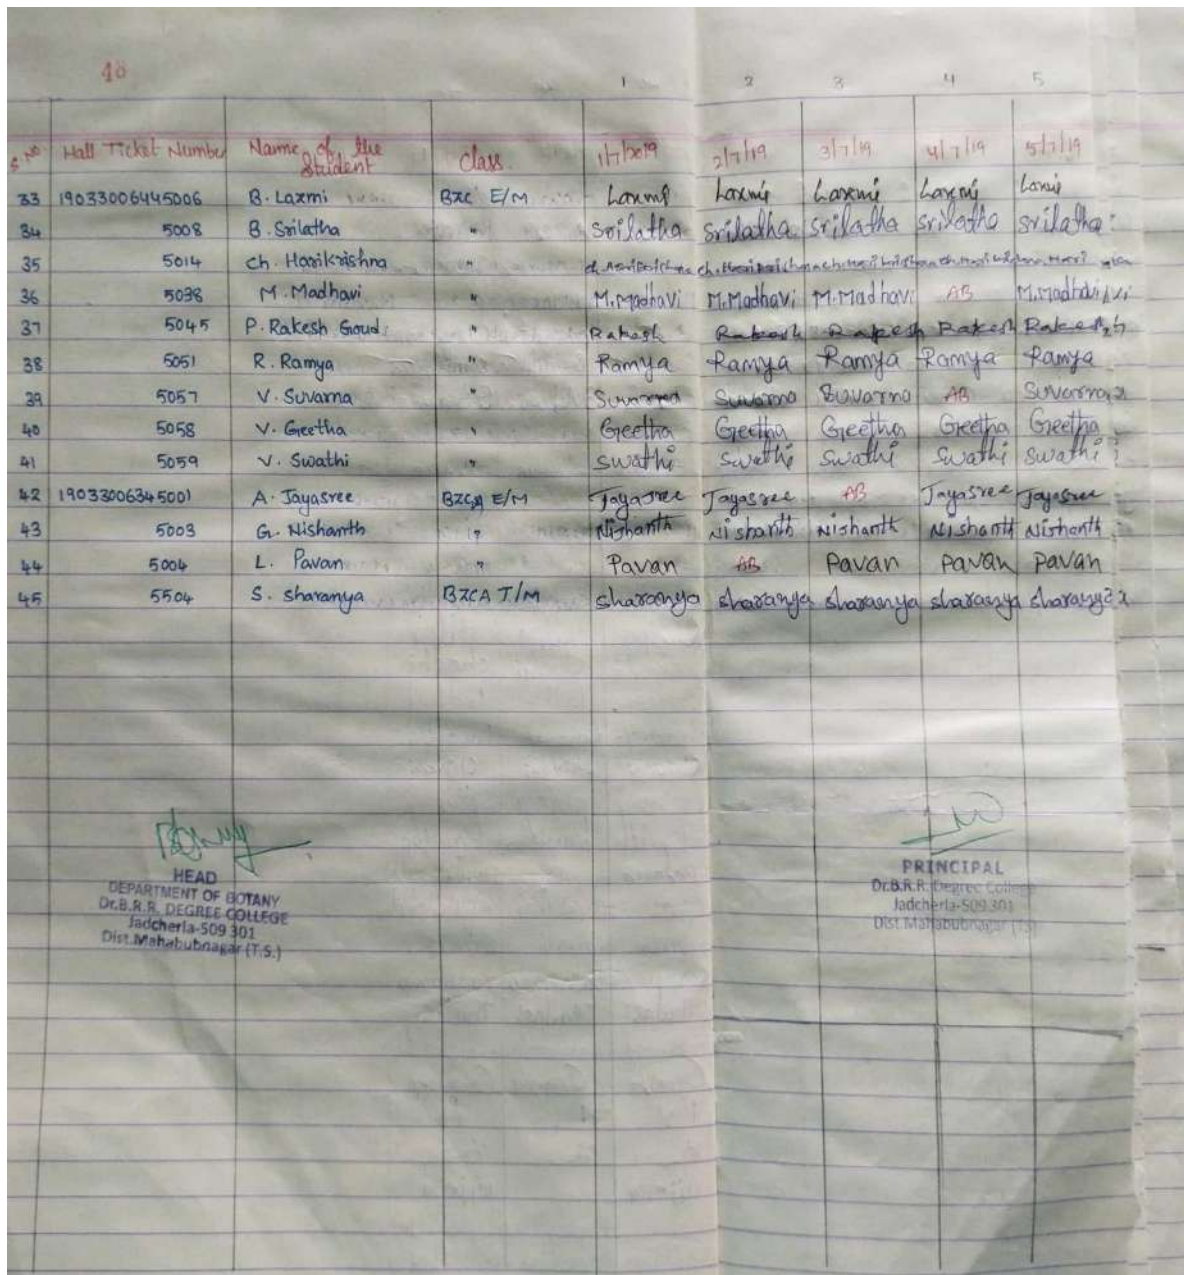 40
1 2 3 4 5
S.NO Hall Ticket Number Name of the Student Class 1/7/2019 2/7/19 3/7/19 4/7/19 5/7/19
33 19033006445006 B. Laxmi BZC E/M Laxmi Laxmi Laxmi Laxmi Laxmi
34 5008 B. Srilatha " Srilatha Srilatha Srilatha Srilatha Srilatha
35 5014 Ch. Harikrishna "
36 5038 M. Madhavi " M.Madhavi M.Madhavi M.Madhavi AB M.Madhavi
37 5045 P. Rakesh Goud " Rakesh Rakesh Rakesh Rakesh Rakesh
38 5051 R. Ramya " Ramya Ramya Ramya Ramya Ramya
39 5057 V. Suvarna " Suvarna Suvarna Suvarna AB Suvarna
40 5058 V. Geetha " Geetha Geetha Geetha Geetha Geetha
41 5059 V. Swathi " Swathi Swathi Swathi Swathi Swathi
42 19033006345001 A. Jayasree BZCA E/M Jayasree Jayasree AB Jayasree Jayasree
43 5003 G. Nishanth " Nishanth Nishanth Nishanth Nishanth Nishanth
44 5004 L. Pavan " Pavan AB Pavan Pavan Pavan
45 5504 S. Sharanya BZCA T/M Sharanya Sharanya Sharanya Sharanya Sharanya
HEAD
DEPARTMENT OF BOTANY
Dr.B.R.R. DEGREE COLLEGE
Jadcherla-509 301
Dist.Mahabubnagar (T.S.)
PRINCIPAL
Dr.B.R.R. Degree College
Jadcherla-509 301
Dist.Mahabubnagar (TS)